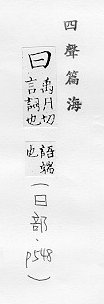 四聲篇海
曰
禹月切
言詞也
語端
也
(曰部．p548)